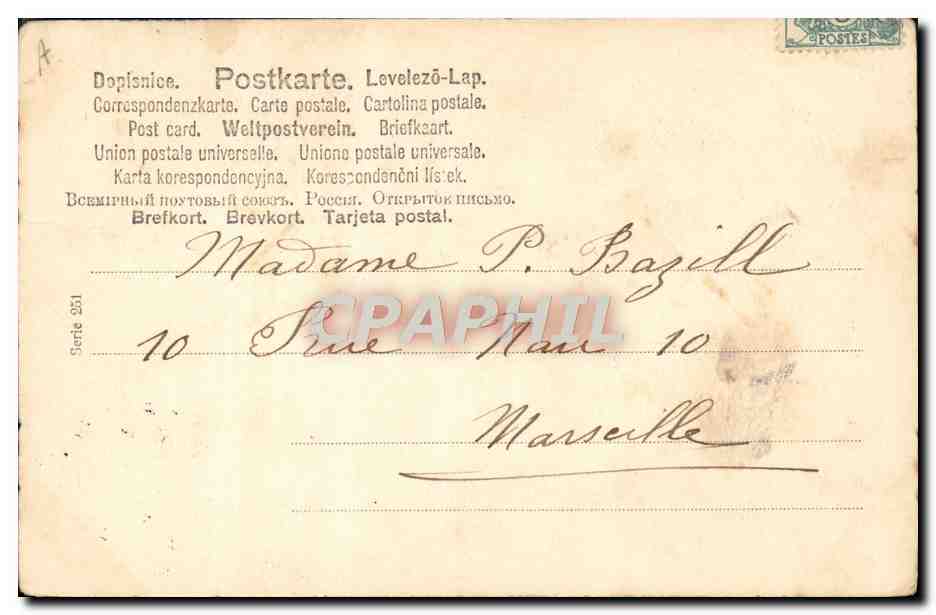 A.
POSTES
Dopisnice. Postkarte. Levelező-Lap.
Correspondenzkarte. Carte postale. Cartolina postale.
Post card. Weltpostverein. Briefkaart.
Union postale universelle. Unione postale universale.
Karta korespondencyjna. Korespondenční lístek.
Всемірный почтовый союзъ. Россія. Открытое письмо.
Brefkort. Brevkort. Tarjeta postal.
Madame P. Bazill
CPAPHIL
10 Rue Nau 10
Marseille
Serie 251